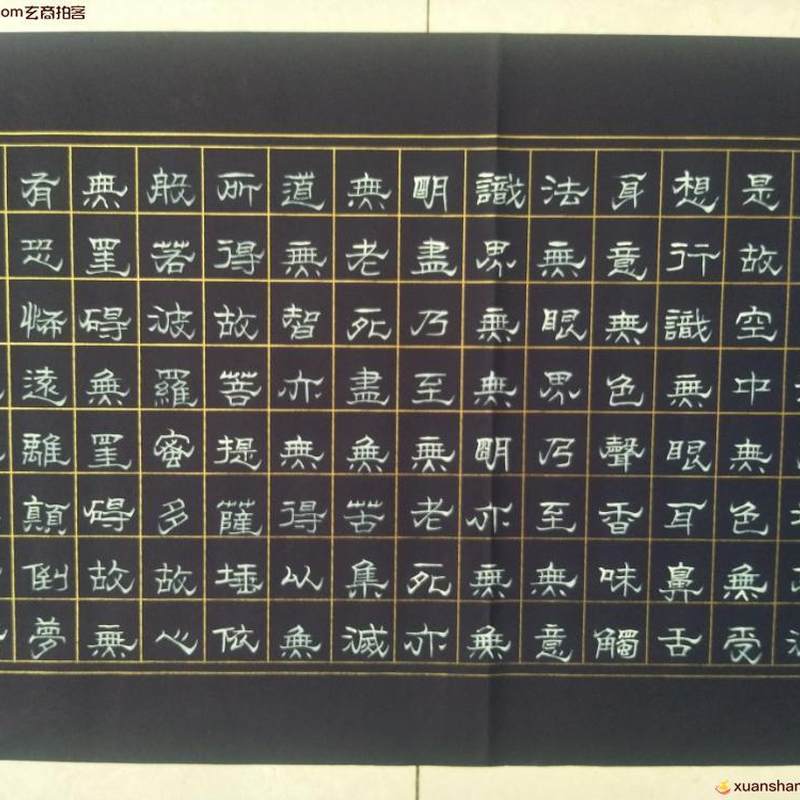 om玄商拍客
是故空中無色無受
想行識無眼耳鼻舌
身意無色聲香味觸
法無眼界乃至無意
識界無無明亦無無
明盡乃至無老死亦
無老死盡無苦集滅
道無智亦無得以無
所得故菩提薩埵依
般若波羅蜜多故心
無罣碍無罣碍故無
有恐怖遠離顛倒夢
xuanshan